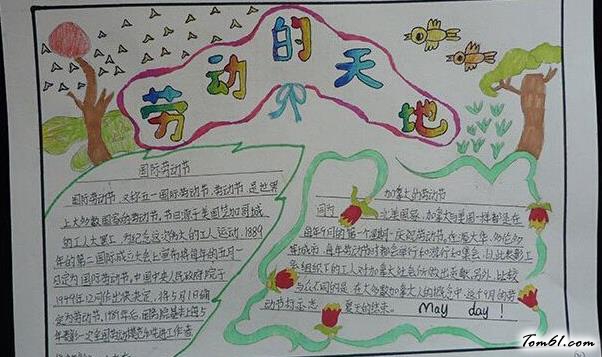 劳动的天地
国际劳动节
国际劳动节 又称五一国际劳动节,劳动节 是世界
上大多数国家的劳动节,节日源于美国芝加哥城
的工人大罢工,为纪念这次伟大的工人运动,1889
年的第二国际成立大会上宣布将每年的五月一
日定为国际劳动节。中国中央人民政府政务院于
1949年12月作出决定,将5月1日确
定为劳动节。1989年后,国务院基本上每5
年表彰一次全国劳动模范和先进工作者
加拿大的劳动节
同为 北美国家,加拿大与美国一样都是在
每年9月的第一个星期一庆祝劳动节。在渥太华、多伦多
等城市,每年劳动节时都会举行和游行和集会,以此表彰工
会组织下的工人对加拿大社会所做出贡献。另外,比较
与众不同的是,在大多数加拿大人的概念中,这个9月的劳
动节却标志 夏天的结束。 May day !
Tom61.com